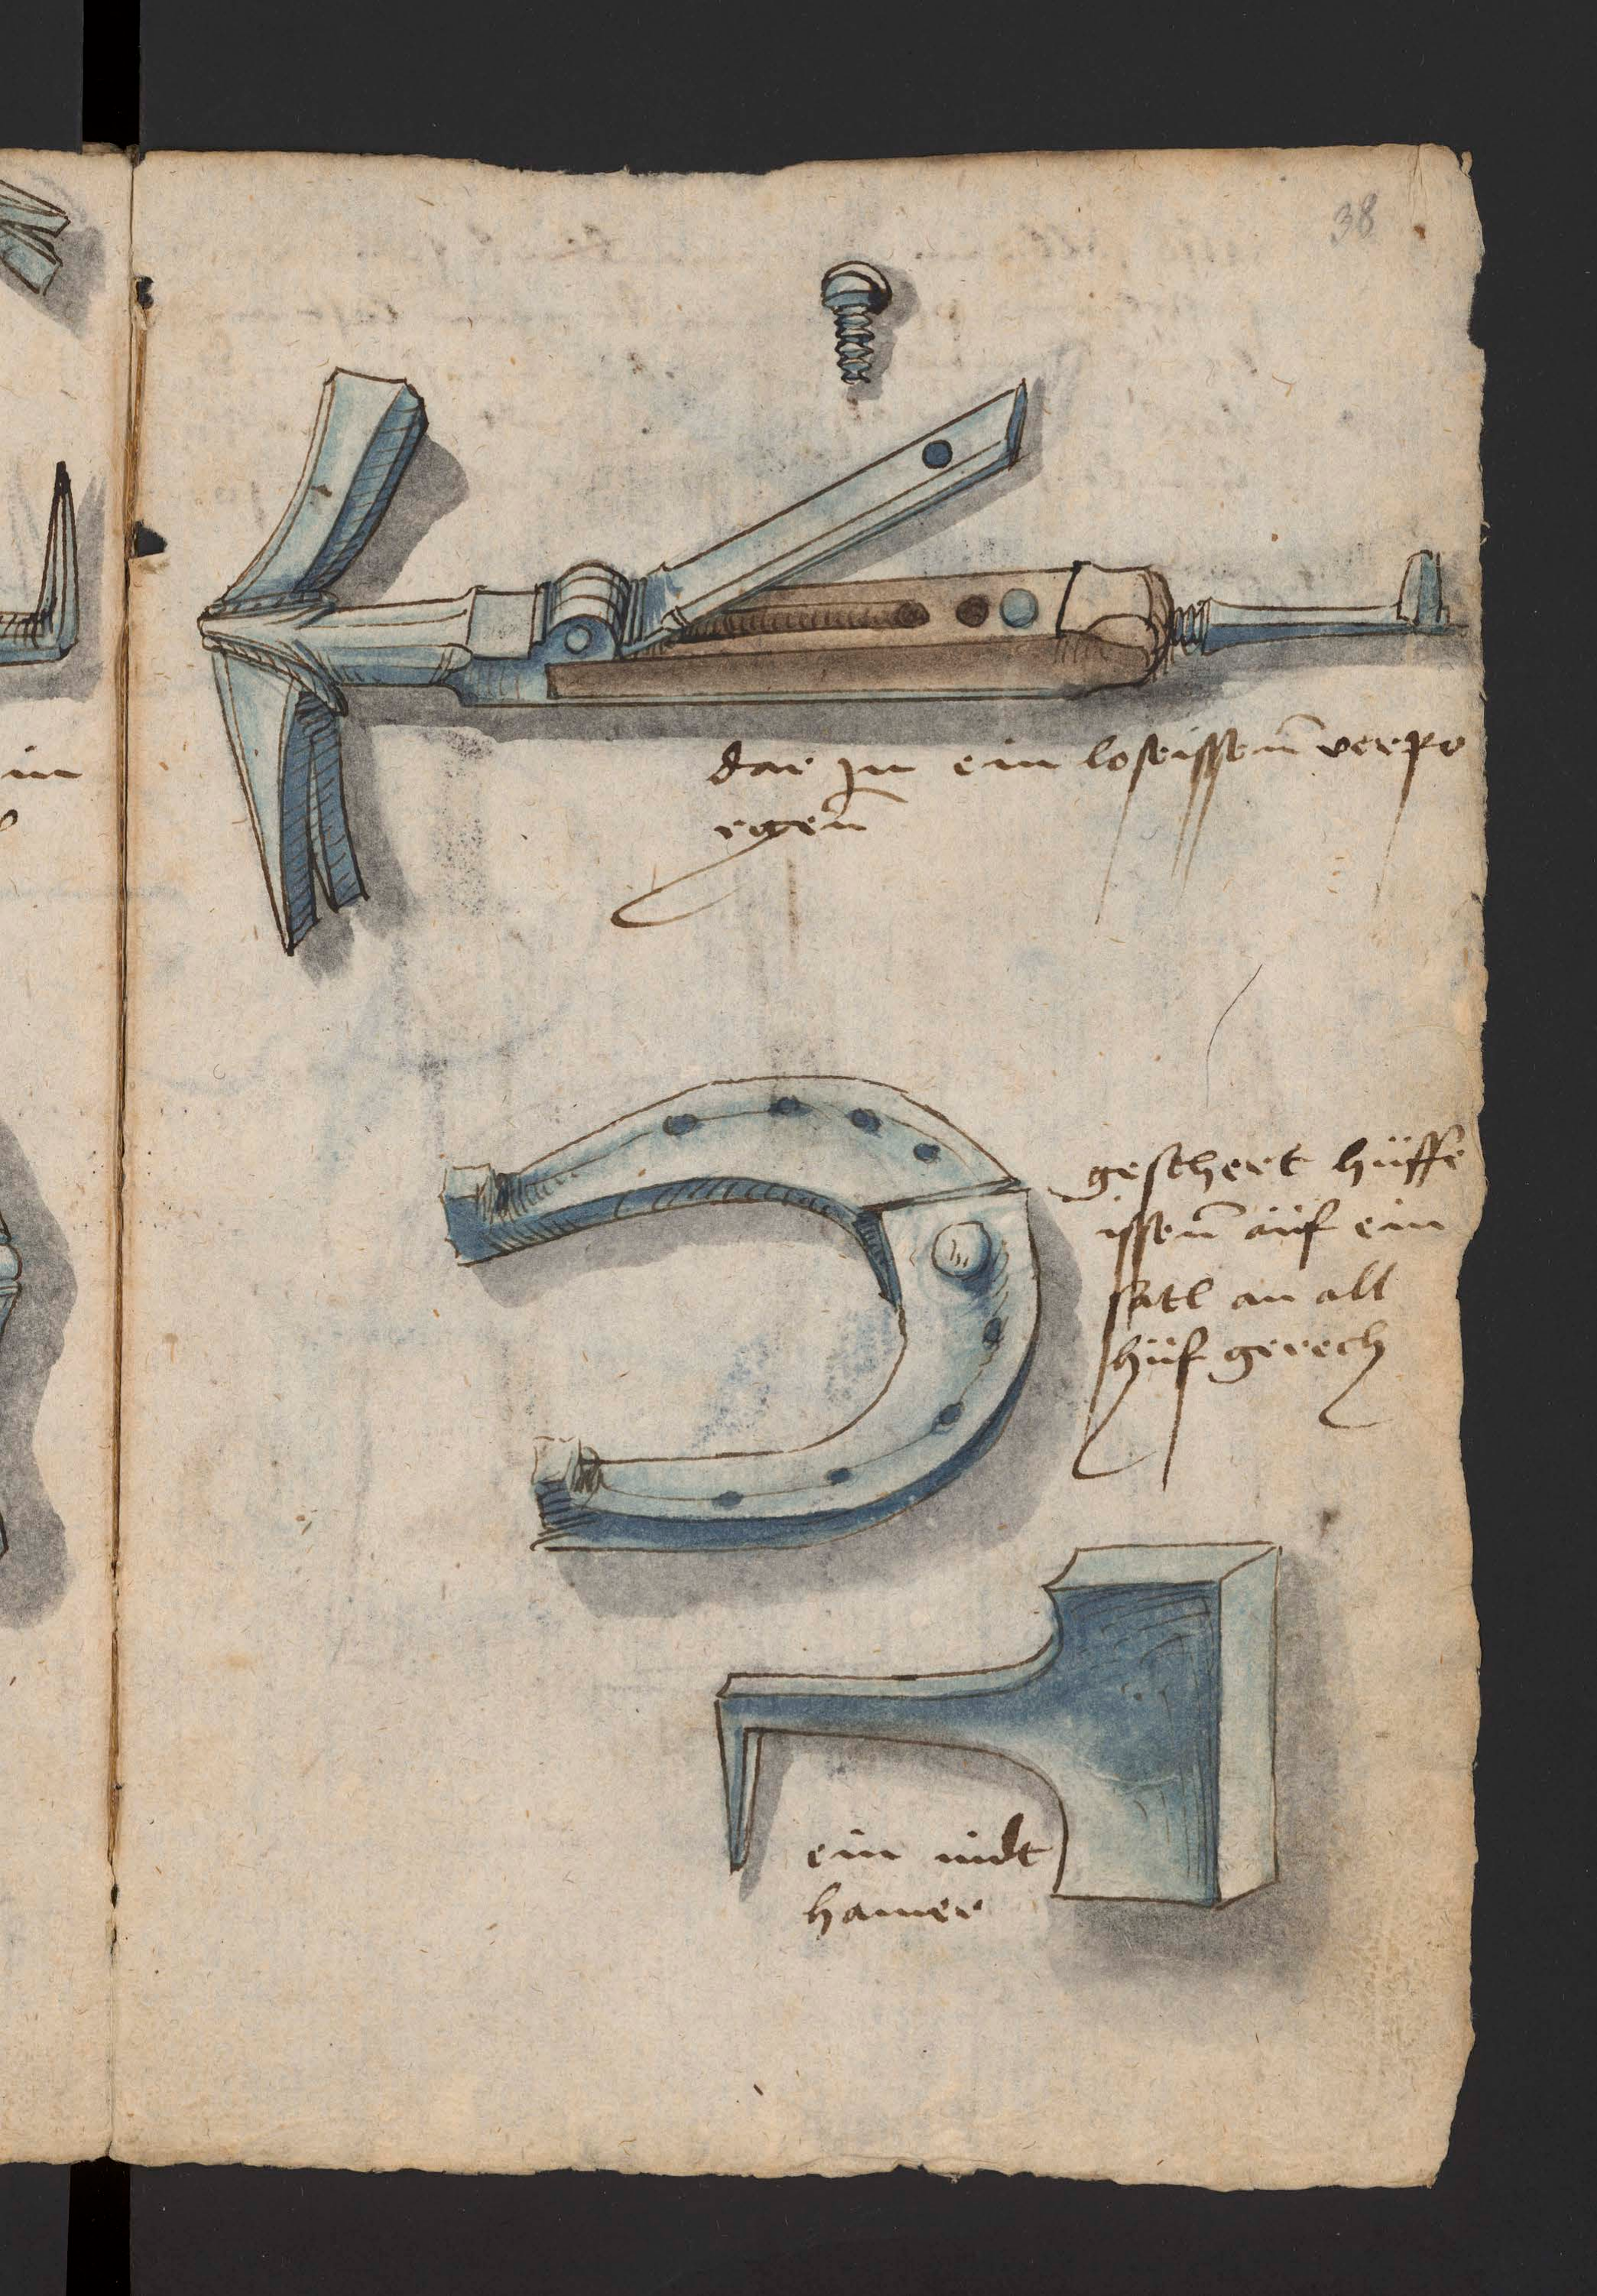 38
dar Jn ein loseissenn̄ verpo
rgenn̄
geschert hüffe
issenn̄ aüf ein
satl an all
hüf gerech
ein nidt
hamer
in